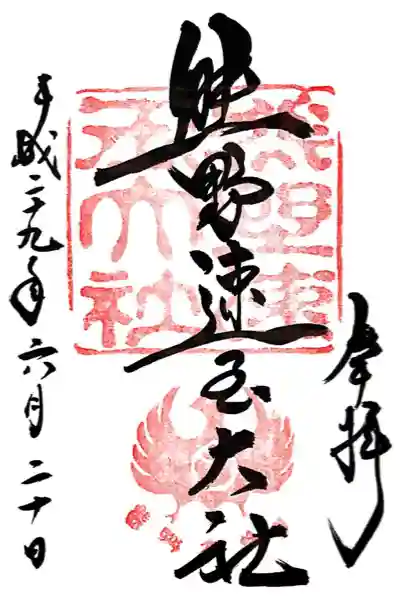 奉拝
熊野速玉大社
平成二十九年六月二十日
熊野速玉大社